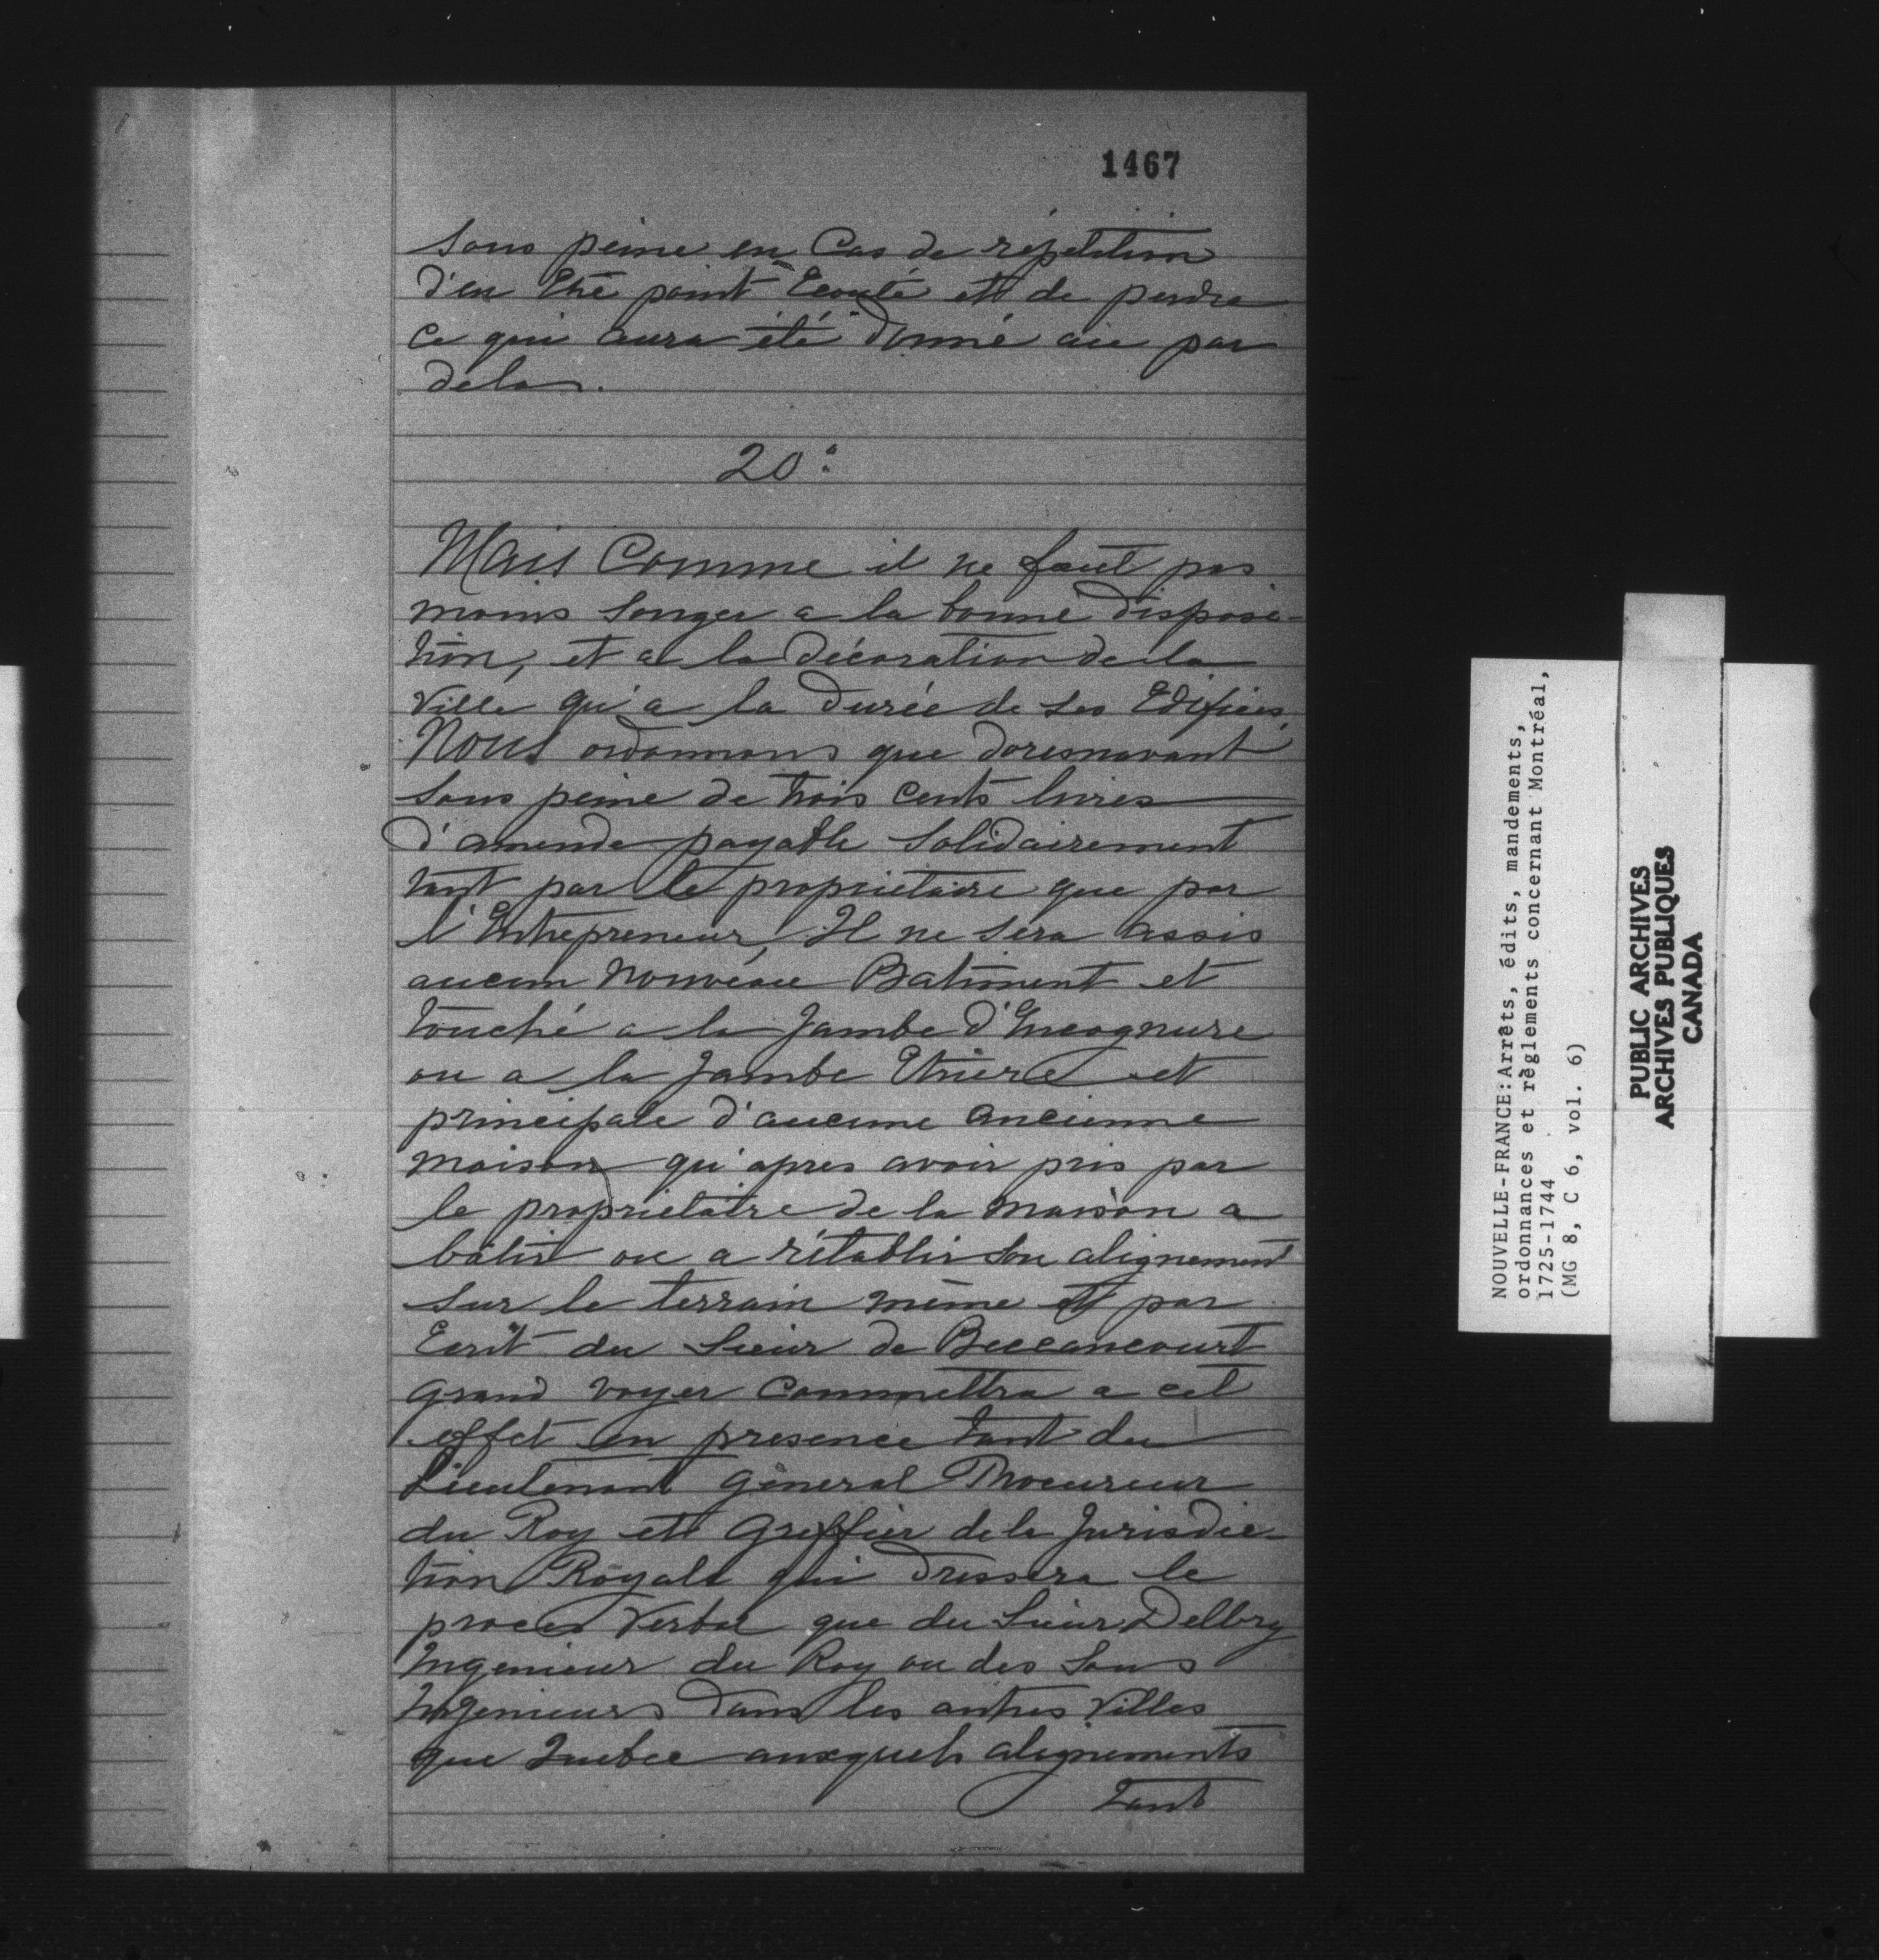 1467
sous peine en Cas de répetition
d'en Etre point Ecouté et de perdre
ce qui aura été donné au par
dela.
20°
Mais Comme il ne faut pas
moins songer a la bonne disposi-
tion, et a la décoration de la
Ville qu'a la durée de ses Edifices,
Nous ordonnons que doresnavant
sous peine de trois cents livres
d'amende payable solidairement
tant par le propriétaire que par
l'Entrepreneur, Il ne sera assis
aucun nouveau Batiment et
touché a la Jambe d'Encognure
ou a la Jambe Etriere et
principale d'aucune ancienne
maison qu'apres avoir pris par
le propriétaire de la maison a
bâtir ou a rétablir son alignement
sur le terrain même et par
Ecrit du Sieur de Beccancourt
grand voyer Commettra a cet
effet en presence tant du
Lieutenant général Procureur
du Roy et Greffier de la Jurisdic-
tion Royale qui dressera le
proces Verbal que du Sieur Dellery
Ingenieur du Roy ou des Sous
Ingenieurs dans les autres Villes
que Quebec auxquels alignements
tant
NOUVELLE-FRANCE:Arrêts, édits, mandements,
ordonnances et règlements concernant Montréal,
1725-1744
(MG 8, C 6, vol. 6)
PUBLIC ARCHIVES
ARCHIVES PUBLIQUES
CANADA